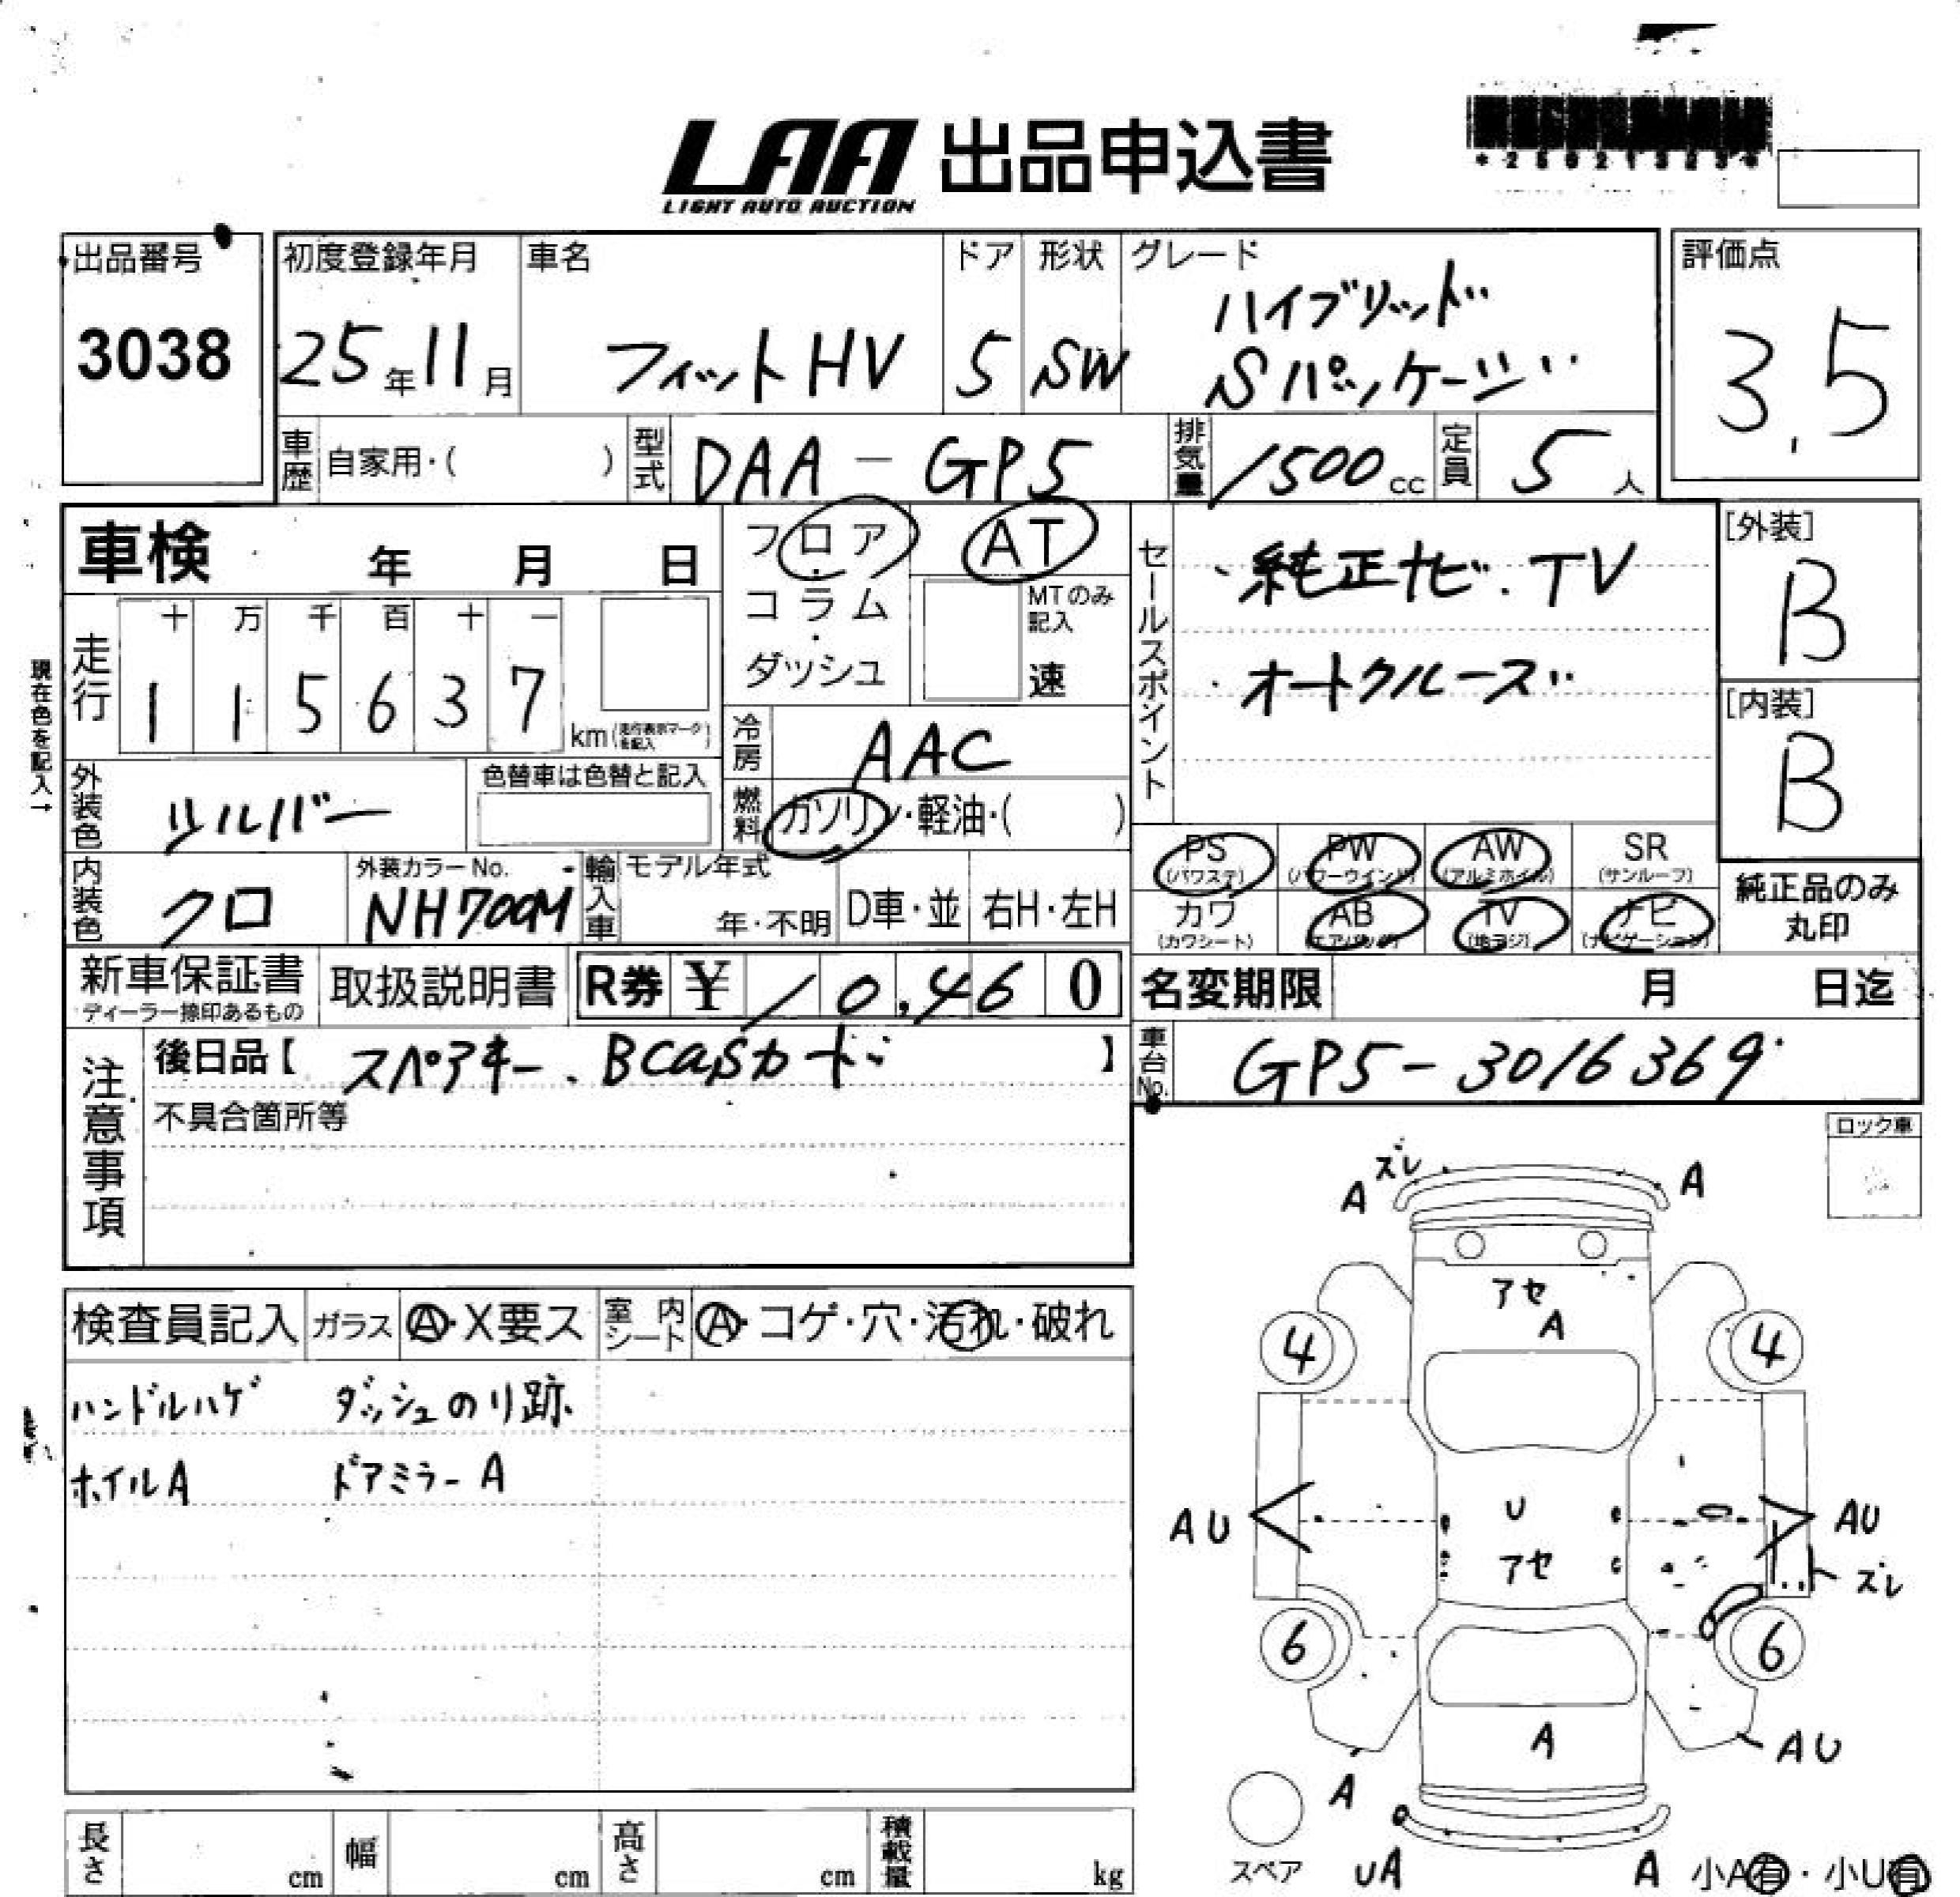 LAA 出品申込書
LIGHT AUTO AUCTION
*25021323*
出品番号
3038
初度登録年月
25年11月
車名
フィットHV
ドア
5
形状
SW
グレード
ハイブリッド
Sパッケージ
評価点
3.5
車歴 自家用・( )
型式 DAA-GP5
排気量 1500cc
定員 5人
車検 年 月 日
フロア・コラム・ダッシュ
AT
MTのみ記入
速
現在色を記入→
走行
十 万 千 百 十 一
1 1 5 6 3 7
km(走行表示マークを記入)
冷房 AAC
燃料 ガソリン・軽油・( )
外装色 シルバー
色替車は色替と記入
内装色 クロ
外装カラーNo.
NH700M
輸入車 モデル年式
年・不明
D車・並
右H・左H
セールスポイント
・純正ナビ.TV
・オートクルーズ
[外装]
B
[内装]
B
PS (パワステ) PW (パワーウインド) AW (アルミホイル) SR (サンルーフ)
カワ (カワシート) AB (エアバッグ) TV (地デジ) ナビ (ナビゲーション)
純正品のみ
丸印
新車保証書
ディーラー捺印あるもの
取扱説明書
R券 ¥10,460
名変期限 月 日迄
車台No. GP5-3016369
注意事項
後日品【 スペアキー、Bcasカード 】
不具合箇所等
ロック車
検査員記入 ガラス A・X要ス 室内シート A・コゲ・穴・汚れ・破れ
ハンドルハゲ ダッシュのり跡
ホイルA ドアミラーA
A ズレ A
アセ
A
4 4
AU U AU
アセ ズレ
6 6
A AU
A
スペア UA A 小A有・小U有
長さ cm 幅 cm 高さ cm 積載量 kg